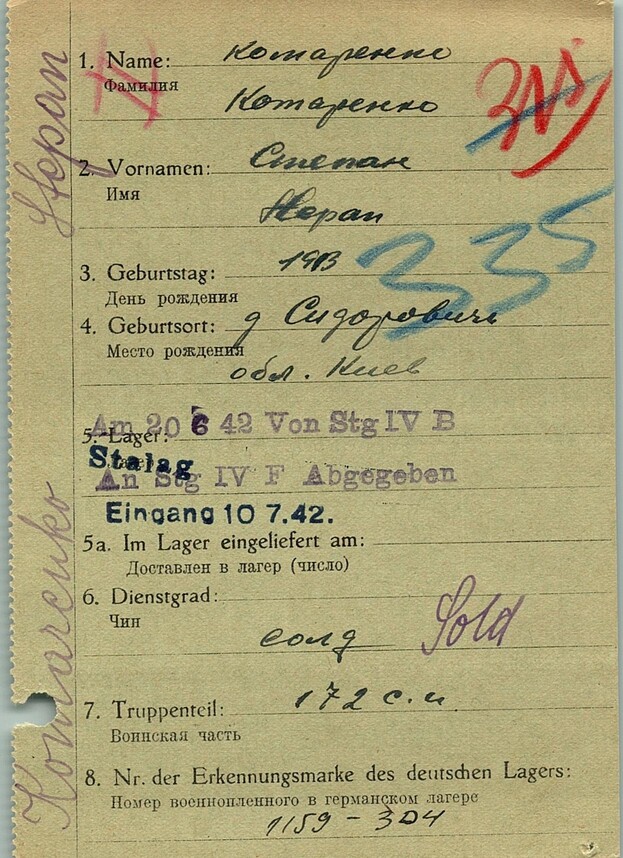 1. Name: Комаренко
Фамилия
Котаренко
2. Vornamen: Степан
Имя
3. Geburtstag: 1913
День рождения
4. Geburtsort: д Сидоровичи
Место рождения
обл. Киев
Am 20 6 42 Von Stg IV B
5. Lager:
Stalag
An Stg IV F Abgegeben
Eingang 10 7.42.
5a. Im Lager eingeliefert am:
Доставлен в лагер (число)
6. Dienstgrad:
Чин
солд Sold
7. Truppenteil: 172 с.п.
Воинская часть
8. Nr. der Erkennungsmarke des deutschen Lagers:
Номер военнопленного в германском лагере
1159 - 304
335
II
Komarenko